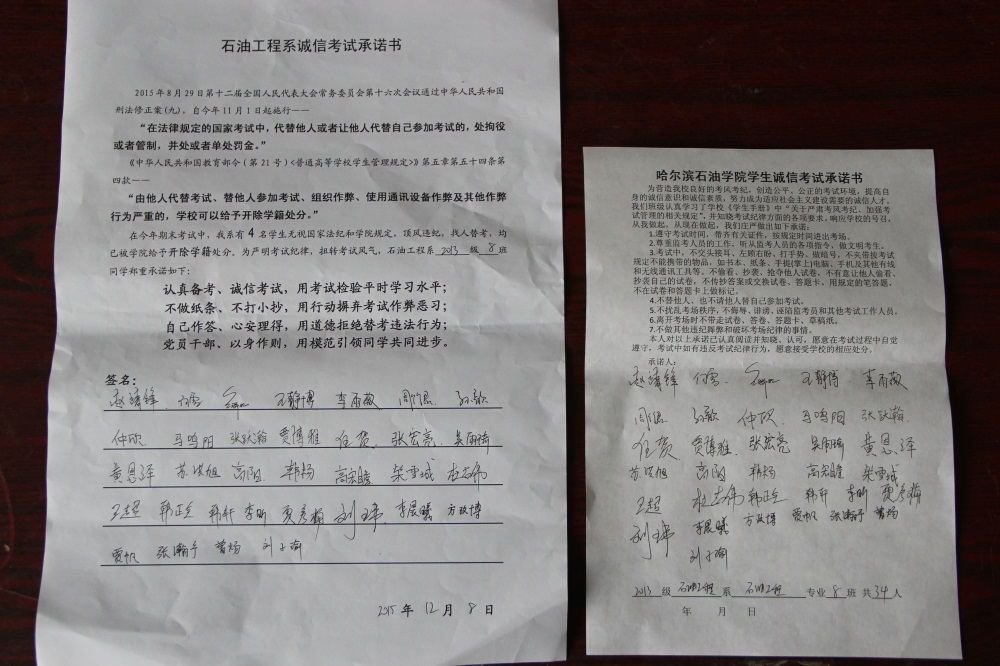 石油工程系诚信考试承诺书
2015年8月29日第十二届全国人民代表大会常务委员会第十六次会议通过中华人民共和国
刑法修正案(九)，自今年11月1日起施行——
“在法律规定的国家考试中，代替他人或者让他人代替自己参加考试的，处拘役
或者管制，并处或者单处罚金。”
《中华人民共和国教育部令(第21号)<普通高等学校学生管理规定>》第五章第五十四条第
四款——
“由他人代替考试、替他人参加考试、组织作弊、使用通讯设备作弊及其他作弊
行为严重的，学校可以给予开除学籍处分。”
在今年期末考试中，我系有4名学生无视国家法纪和学院规定，顶风违纪，找人替考，均
已被学院给予开除学籍处分。为严明考试纪律，扭转考试风气，石油工程系 2013 级 8 班
同学郑重承诺如下：
认真备考、诚信考试，用考试检验平时学习水平；
不做纸条、不打小抄，用行动摒弃考试作弊恶习；
自己作答、心安理得，用道德拒绝替考违法行为；
党员干部、以身作则，用模范引领同学共同进步。
签名：
王静博 李雨薇
仲欣 马鸣阳 张钦瀚 贾博雅 任贺 张宏亮 吴雨琦
黄恩泽 苏洪旭 高阳 韩杨 高宏瞻 柴雪城
王超 韩正垒 韩轩 李昕 贾彦梅 刘玮 李晨曦 方政博
贾帆 张瀚予 曾杨 刘子瑜
2015 年 12 月 8 日
哈尔滨石油学院学生诚信考试承诺书
为营造我校良好的考风考纪，创造公平、公正的考试环境，提高自
身的诚信意识和诚信素质，努力成为适应社会主义建设需要的诚信人才，
我们班级认真学习了学校《学生手册》中“关于严肃考风考纪、加强考
试管理的相关规定”，并知晓考试纪律方面的各项要求，响应学校的号召，
从我做起，从现在做起，我们庄严做出如下承诺：
1.遵守考试时间，带齐有关证件，按规定时间进出考场。
2.尊重监考人员的工作，听从监考人员的各项指令，做文明考生。
3.考试中，不交头接耳、左顾右盼、打手势、做暗号，不夹带按考试
规定不能携带的物品，如书本、纸条、手提(掌上)电脑、手机及其他有线
和无线通讯工具等。不偷看、抄袭、抢夺他人试卷，不有意让他人偷看、
抄袭自己的试卷，不传抄答案或交换试卷、答题卡，用规定的笔答题，
不在试卷和答题卡上做标记。
4.不替他人，也不请他人替自己参加考试。
5.不扰乱考场秩序，不侮辱、诽谤、诬陷监考员和其他考试工作人员。
6.离开考场时不带走试卷、答卷、答题卡，草稿纸。
7.不做其他违纪舞弊和破坏考场纪律的事情。
本人对以上承诺已认真阅读并知晓、认可，愿意在考试过程中自觉
遵守，考试中如有违反考试纪律行为，愿意接受学校的相应处分。
承诺人：
王静博 李雨薇
仲欣 马鸣阳 张钦瀚
任贺 贾博雅 张宏亮 吴雨琦 黄恩泽
苏洪旭 高阳 韩杨 高宏瞻 柴雪城
王超 韩正垒 韩轩 李昕 贾彦梅
刘玮 李晨曦 方政博 贾帆 张瀚予 曾杨
刘子瑜
2013 级 石油工程 系 石油工程 专业 8 班 共 34 人
年 月 日